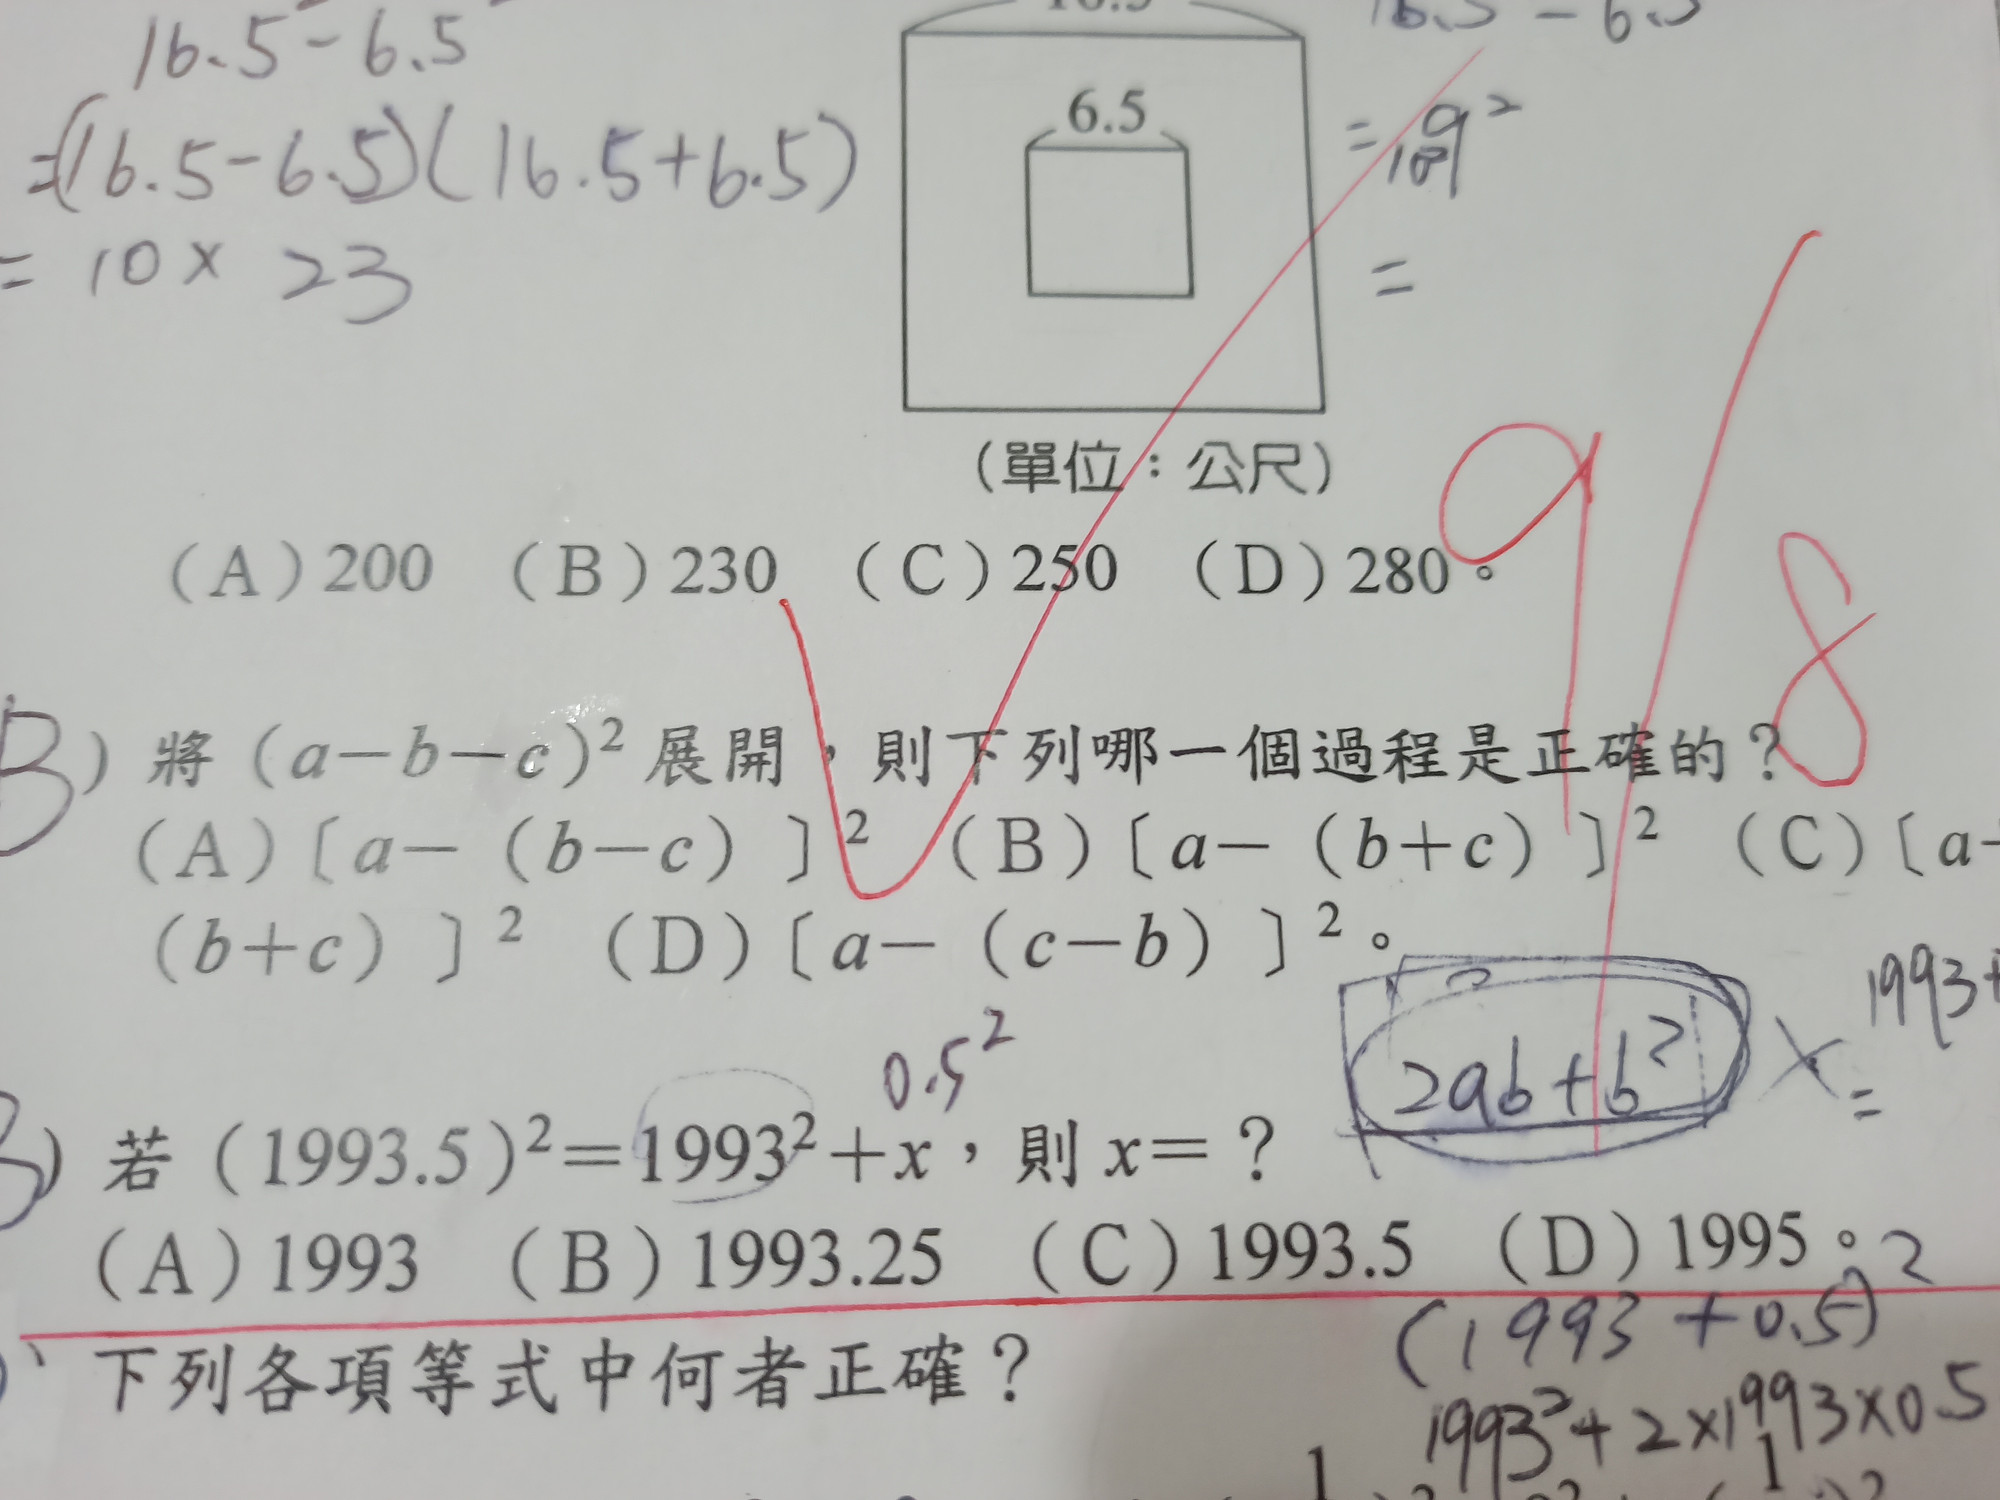 16.5-6.5
=(16.5-6.5)(16.5+6.5)
= 10 × 23
6.5
=
(單位：公尺)
(A)200 (B)230 (C)250 (D)280。
9/8
B) 將(a-b-c)²展開，則下列哪一個過程是正確的？
(A)〔a-(b-c)〕² (B)〔a-(b+c)〕² (C)〔a-
(b+c)〕² (D)〔a-(c-b)〕²。
0.5²
2ab+b²
x=
1993+
) 若(1993.5)²=1993²+x，則x=？
(A)1993 (B)1993.25 (C)1993.5 (D)1995。
(1993+0.5)²
1993²+2×1993×0.5
下列各項等式中何者正確？